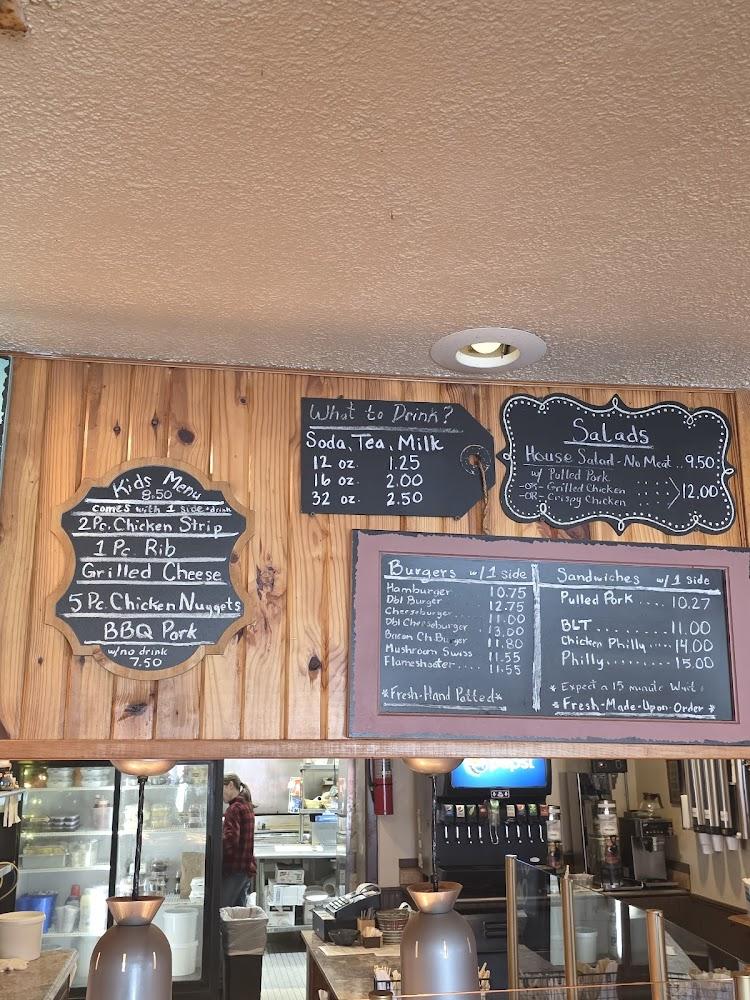 Kids Menu
8.50
comes with 1 side + drink
2 Pc. Chicken Strip
1 Pc. Rib
Grilled Cheese
5 Pc. Chicken Nuggets
BBQ Pork
w/no drink
7.50
What to Drink?
Soda, Tea, Milk
12 oz. 1.25
16 oz. 2.00
32 oz. 2.50
Salads
House Salad - No Meat .. 9.50
w/ Pulled Pork
-OR- Grilled Chicken
-OR- Crispy Chicken
12.00
Burgers w/ 1 side
Hamburger 10.75
Dbl Burger 12.75
Cheeseburger... 11.00
Dbl Cheeseburger 13.00
Bacon Ch. Burger 11.80
Mushroom Swiss 11.55
Flameshooter.... 11.55
*Fresh-Hand Patted*
Sandwiches w/ 1 side
Pulled Pork .... 10.27
BLT.......... 11.00
Chicken Philly .... 14.00
Philly....... 15.00
* Expect a 15 minute Wait *
* Fresh-Made-Upon-Order *
pepsi